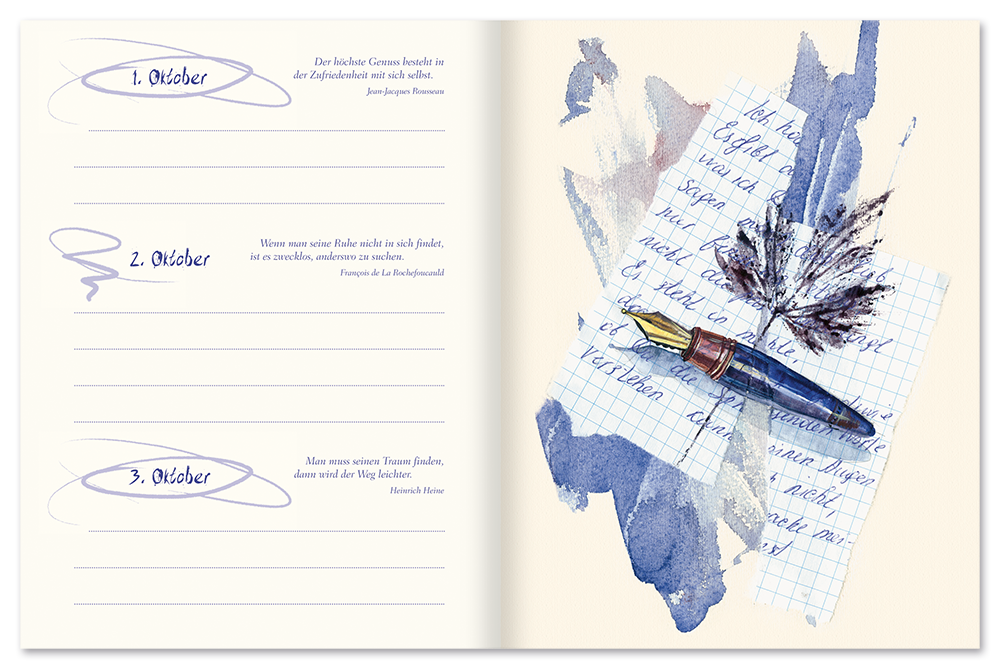 1. Oktober
Der höchste Genuss besteht in
der Zufriedenheit mit sich selbst.
Jean-Jacques Rousseau
2. Oktober
Wenn man seine Ruhe nicht in sich findet,
ist es zwecklos, anderswo zu suchen.
François de La Rochefoucauld
3. Oktober
Man muss seinen Traum finden,
dann wird der Weg leichter.
Heinrich Heine
Ich
Es gibt
was ich
sagen
nur
nicht die
Es steht in
ob die
verstehen kann
nicht,